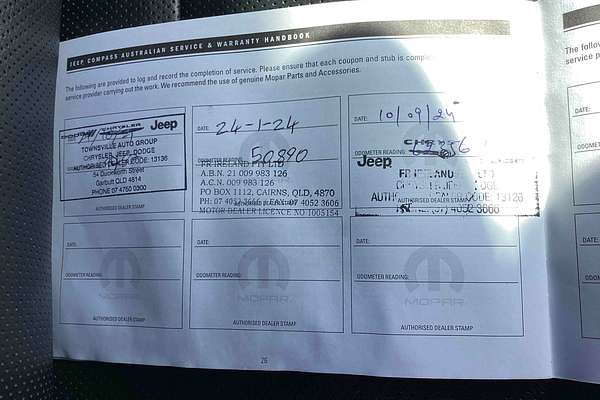 JEEP COMPASS AUSTRALIAN SERVICE & WARRANTY HANDBOOK
The following are provided to log and record the completion of service. Please ensure that each coupon and stub is
service provider carrying out the work. We recommend the use of genuine Mopar Parts and Accessories.
CHRYSLER Jeep
TOWNSVILLE AUTO GROUP
CHRYSLER, JEEP, DODGE
AUTHORISED DEALER CODE: 13136
54 Duckworth Street
Garbutt QLD 4814
PHONE 07 4750 0300
AUTHORISED DEALER STAMP
DATE: 24-1-24
ODOMETER READING: 50,890
TRELAND PTY LTD
A.B.N. 21 009 983 126
A.C.N. 009 983 126
PO BOX 1112, CAIRNS, QLD, 4870
PH: 07 4052 3666 FAX: 07 4052 3606
MOTOR DEALER LICENCE NO 1005154
AUTHORISED DEALER STAMP
DATE: 10/09/24
ODOMETER READING:
Jeep
CODE: 13126
07) 4052 3666
AUTHORISED DEALER STAMP
DATE:
ODOMETER READING:
MOPAR
AUTHORISED DEALER STAMP
DATE:
ODOMETER READING:
MOPAR
AUTHORISED DEALER STAMP
DATE:
ODOMETER READING:
MOPAR
AUTHORISED DEALER STAMP
26
The
service p
DATE:
ODOMETER
DATE:
ODOMETER